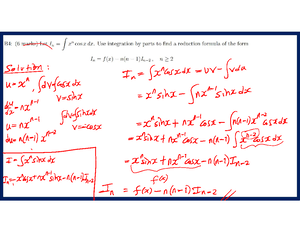 B4. (6 marks) Let Iₙ = ∫ xⁿ cos x dx. Use integration by parts to find a reduction formula of the form
Iₙ = f(x) − n(n − 1)Iₙ₋₂, n ≥ 2
Solution:
u = xⁿ, ∫dv = ∫cosx dx
v = sinx
du/dx = nxⁿ⁻¹
u = nxⁿ⁻¹ ∫dv = ∫sinx dx
v = −cosx
du = n(n−1)xⁿ⁻²
I = ∫xⁿ sinx dx
Iₙ = −xⁿcosx + nxⁿ⁻¹sinx − n(n−1)Iₙ₋₂
Iₙ = ∫xⁿcosx dx = uv − ∫v du
= xⁿ sinx − ∫nxⁿ⁻¹ sinx dx
= xⁿ sinx + nxⁿ⁻¹ cosx − ∫n(n−1)xⁿ⁻² cosx dx
= xⁿ sinx + nxⁿ⁻¹ cosx − n(n−1)∫xⁿ⁻² cosx dx
= xⁿ sinx + nxⁿ⁻¹ cosx − n(n−1)Iₙ₋₂
f(x)
Iₙ = f(x) − n(n−1)Iₙ₋₂